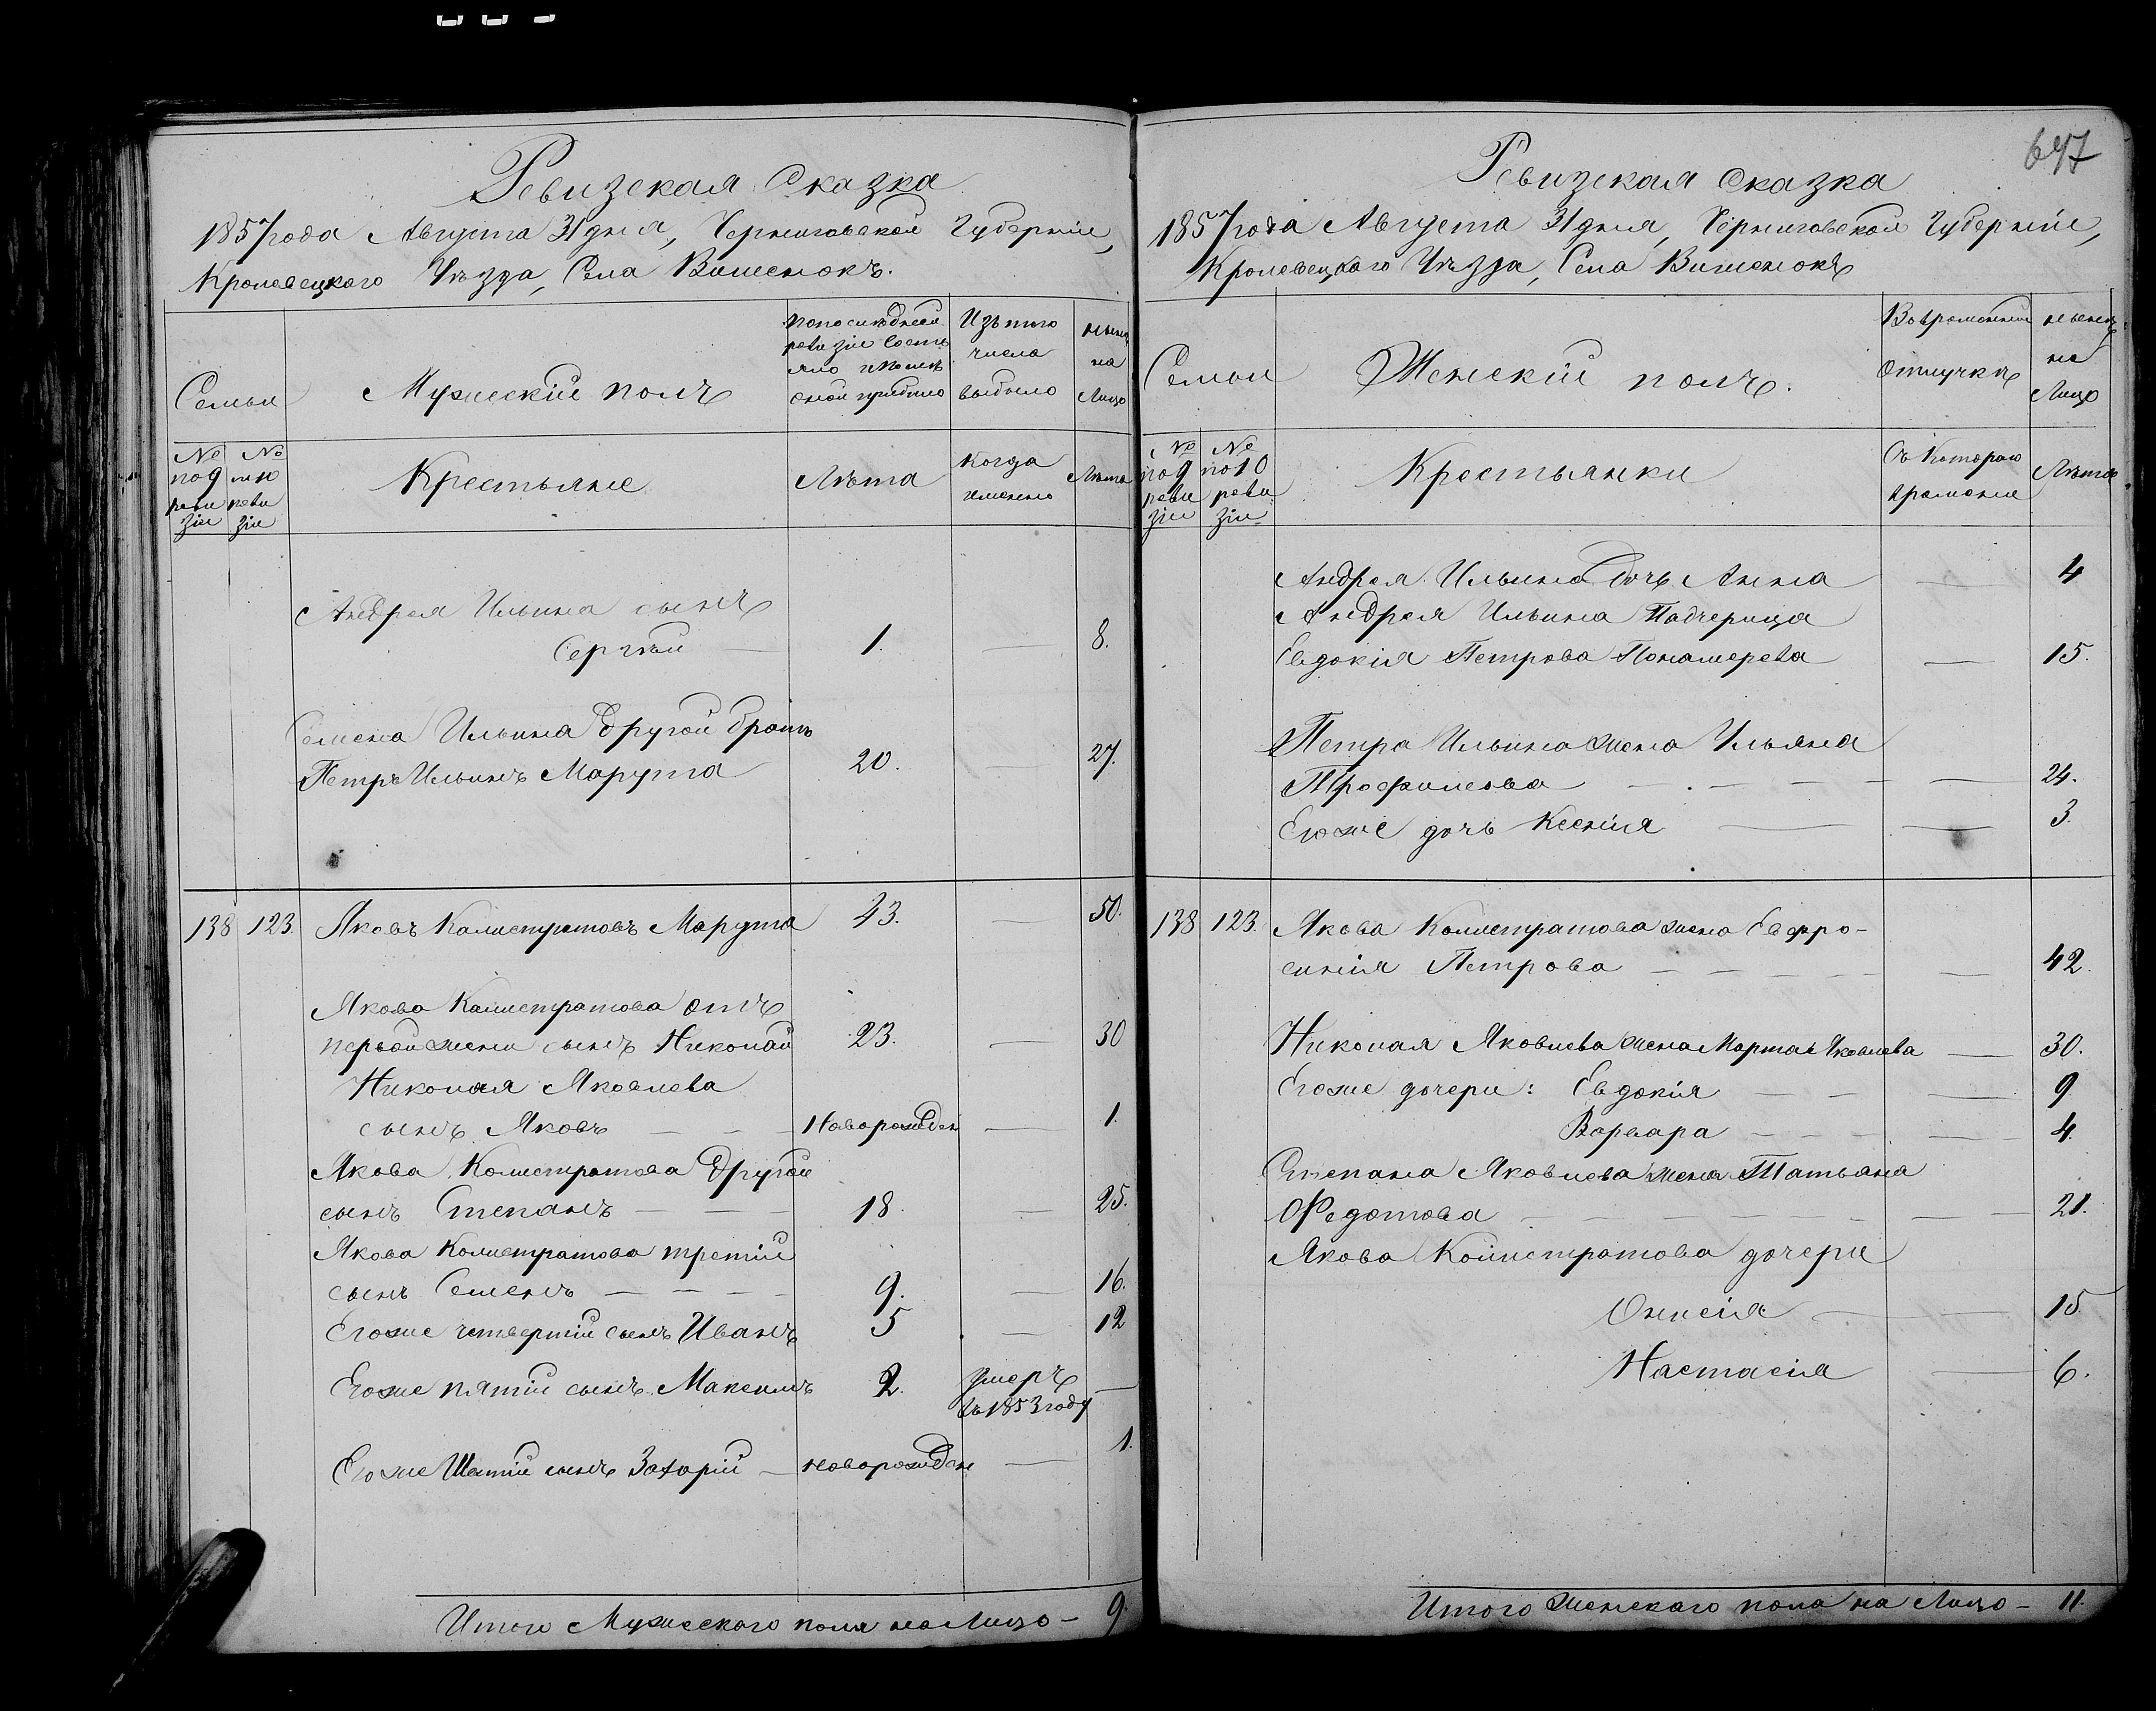 Ревизская Сказка
1857 года Августа 31 дня, Черниговской Губерніи,
Кролевецкаго Уѣзда, Села Вишенокъ.
Семьи
Мужескій полъ
По последней
ревизіи состо
яло и после
оной прибыло
Изъ того
числа
выбыло
ныне
на
Лицо
№ по 9 реви зіи
№ по 10 реви зіи
Крестьяне
Лѣта
Когда
именно
Лѣта
Андрея Ильина сынъ
Сергѣй — 1. — 8.
Семена Ильина другой братъ
Петръ Ильинъ Марута 20. — 27.
138 123. Яковъ Калистратовъ Марута 43. — 50.
Якова Калистратова отъ
первой жены сынъ Николай 23. — 30
Николая Яковлева
сынъ Яковъ — — — Новорожден — 1.
Якова Калистратова другой
сынъ Степанъ — — — 18. — 25.
Якова Калистратова третій
сынъ Семенъ — — — — 9. — 16.
Егоже четвертій сынъ Иванъ 5 — 12
Егоже пятій сынъ Максимъ 2. умеръ —
въ 1853 году
Егоже Шестій сынъ Захарій — новорожден — 1.
Итого Мужескаго пола на Лицо — 9.
647
Ревизская Сказка
1857 года Августа 31 дня, Черниговской Губерніи,
Кролевецкаго Уѣзда, Села Вишенокъ
Семьи
Женскій полъ.
Во временной
отлучкѣ
ныне
на
Лицо
№ по 9 реви зіи
№ по 10 реви зіи
Крестьянки
Съ котораго
времени
Лѣта
Андрея Ильина дочь Анна — 4
Андрея Ильина Падчерица
Евдокія Петрова Понамерева — 15.
Петра Ильина жена Ульяна
Трофимова — . — — — — 24.
Егоже дочь Ксенія — — 3.
138 123. Якова Калистратова жена Евфро-
синія Петрова — — — — — 42.
Николая Яковлева жена Марта Яковлева — 30.
Егоже дочери: Евдокія — — — 9
Варвара — — — — — 4.
Степана Яковлева жена Татьяна
Федотова — — — — — — — 21.
Якова Калистратова дочери
Онисія — — 15
Настасія — 6.
Итого женскаго пола на Лицо — 11.